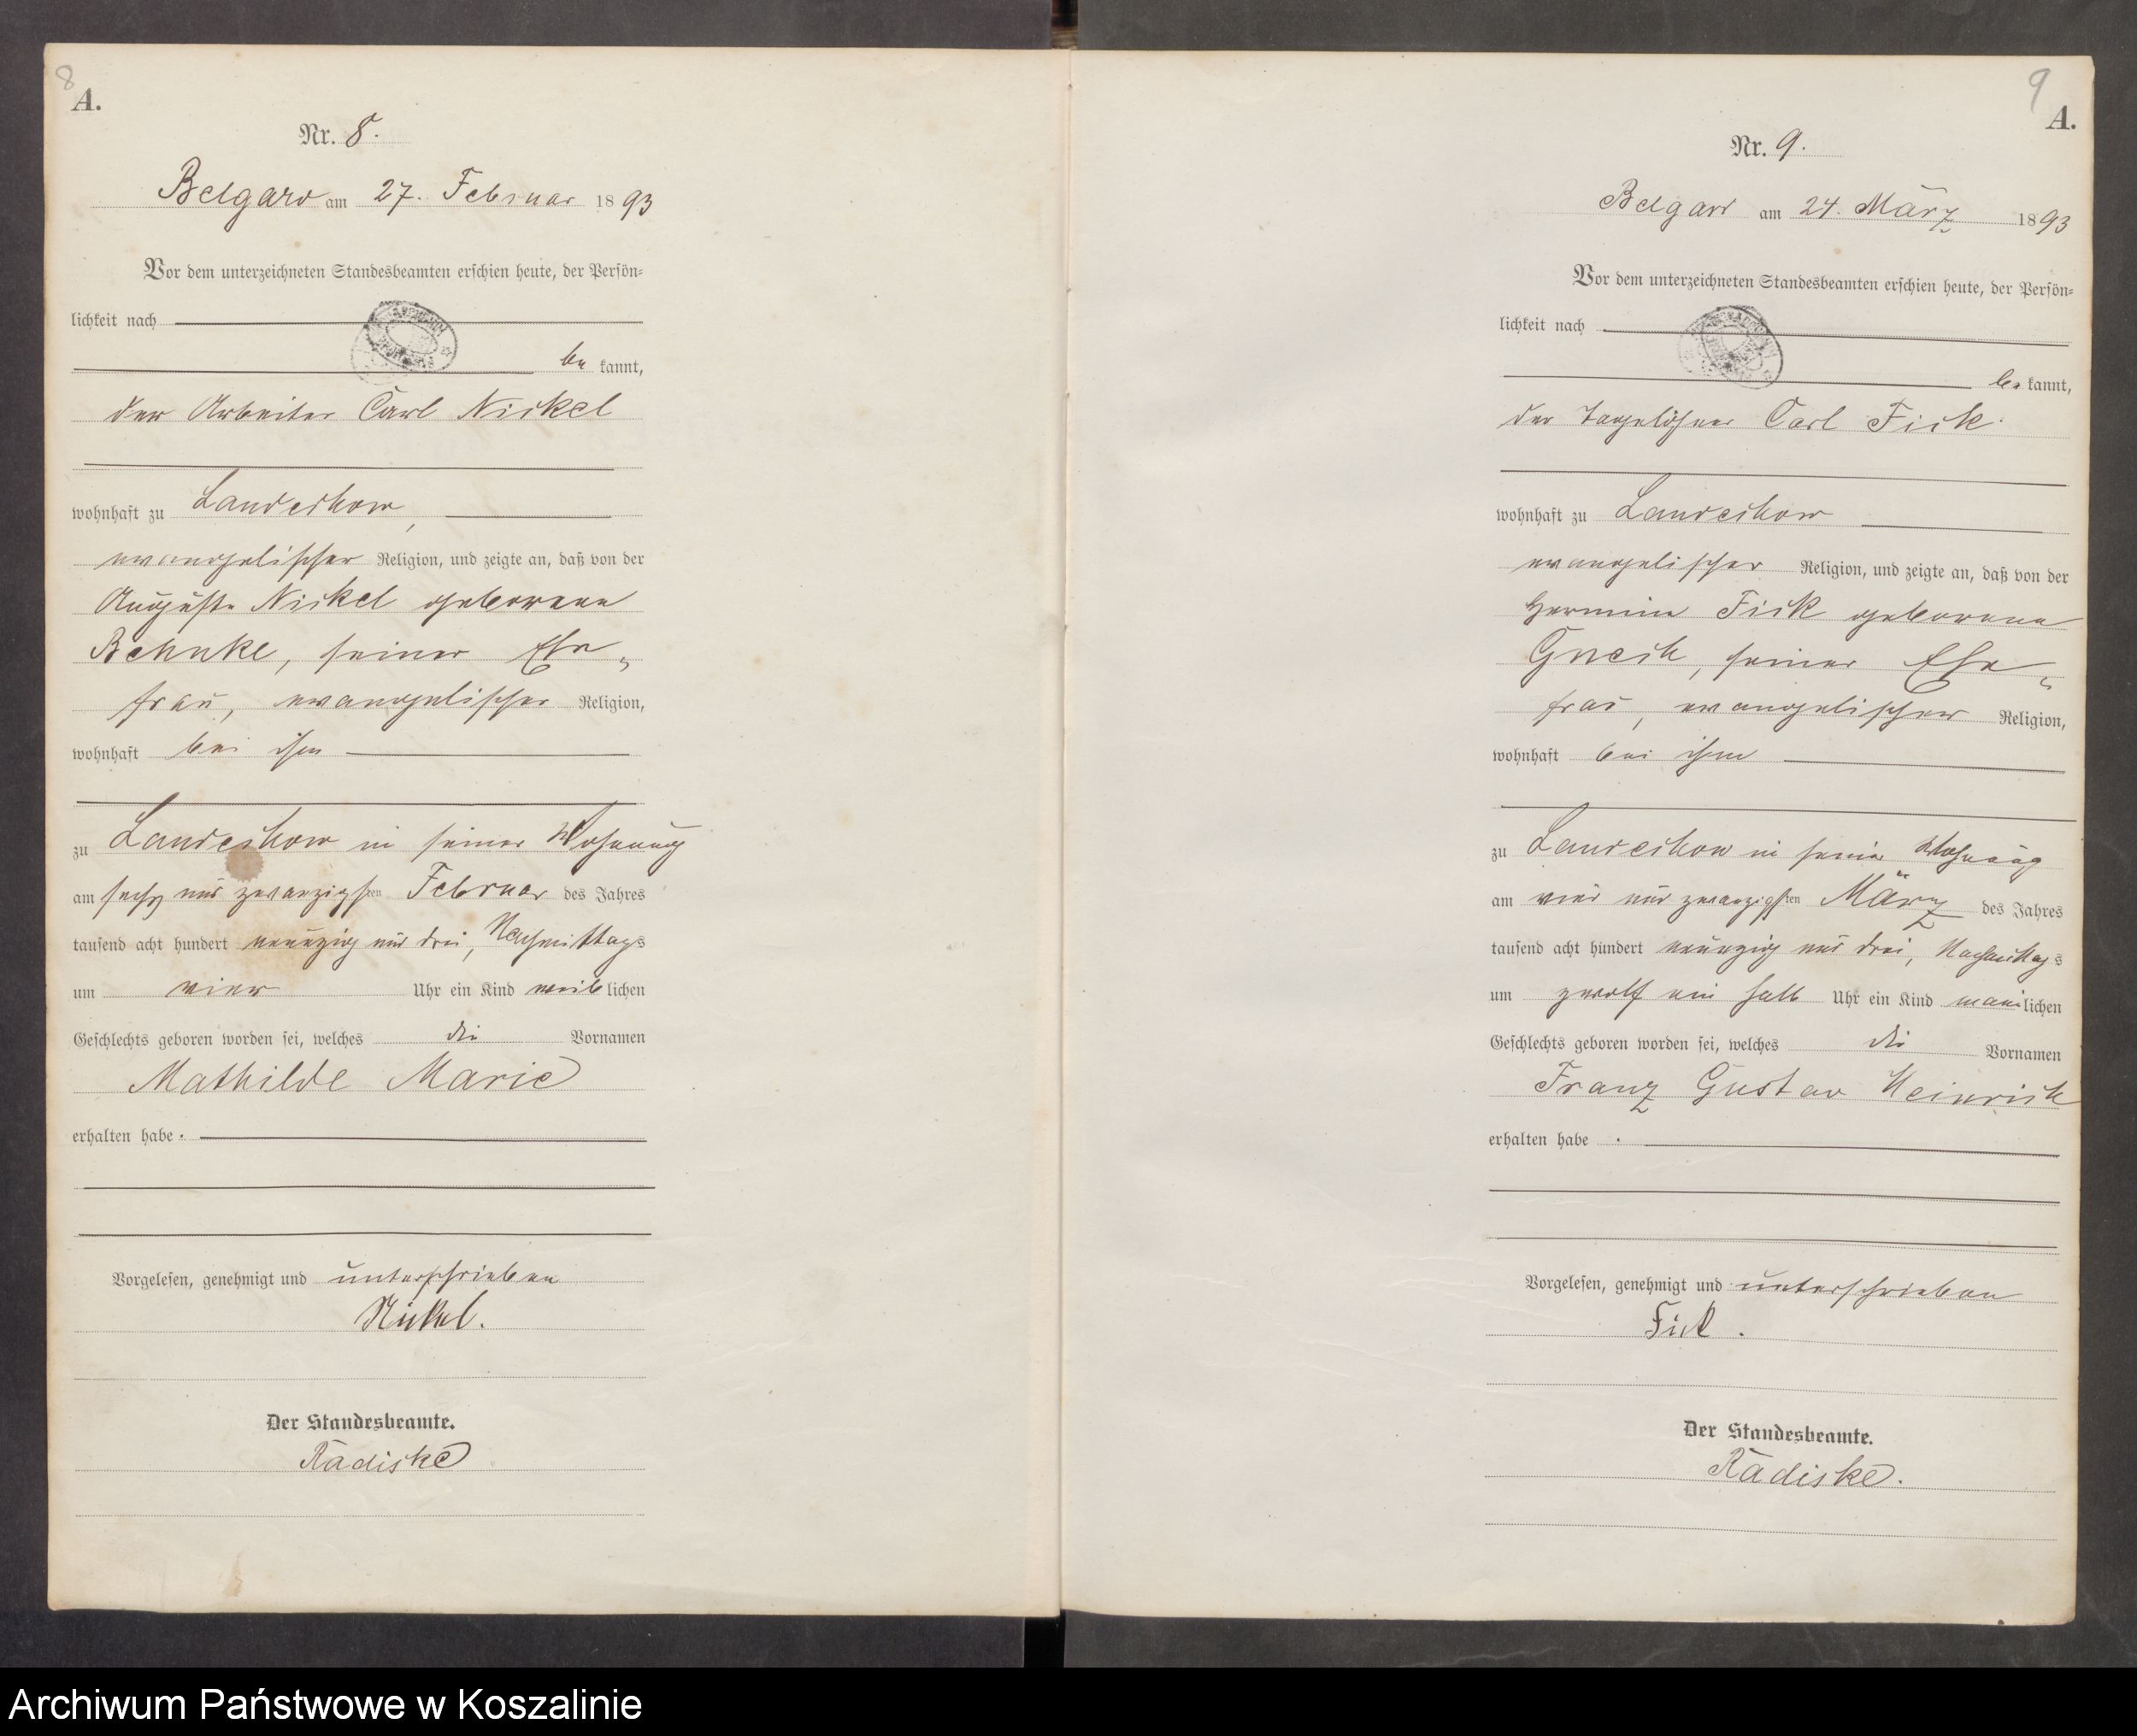 8
A.
Nr. 8.
Belgard am 27. Februar 1893
Vor dem unterzeichneten Standesbeamten erschien heute, der Persön-
lichkeit nach
be kannt,
der Arbeiter Carl Nickel
wohnhaft zu Landechow,
evangelischer Religion, und zeigte an, daß von der
Auguste Nickel geborene
Behnke, seiner Ehe-
frau, evangelischer Religion,
wohnhaft bei ihm
zu Landechow in seiner Wohnung
am sechs und zwanzigsten Februar des Jahres
tausend acht hundert neunzig und drei, Nachmittags
um vier Uhr ein Kind weiblichen
Geschlechts geboren worden sei, welches die Vornamen
Mathilde Marie
erhalten habe.
Vorgelesen, genehmigt und unterschrieben
Nickel.
Der Standesbeamte.
Radiske
9
A.
Nr. 9.
Belgard am 24. März 1893
Vor dem unterzeichneten Standesbeamten erschien heute, der Persön-
lichkeit nach
be kannt,
der Tagelöhner Carl Fick.
wohnhaft zu Landechow
evangelischer Religion, und zeigte an, daß von der
Hermine Fick geborene
Gnech, seiner Ehe-
frau, evangelischer Religion,
wohnhaft bei ihm
zu Landechow in seiner Wohnung
am vier und zwanzigsten März des Jahres
tausend acht hundert neunzig und drei, Nachmittags
um zwölf ein halb Uhr ein Kind männlichen
Geschlechts geboren worden sei, welches die Vornamen
Franz Gustav Heinrich
erhalten habe.
Vorgelesen, genehmigt und unterschrieben
Fick.
Der Standesbeamte.
Radiske.
Archiwum Państwowe w Koszalinie